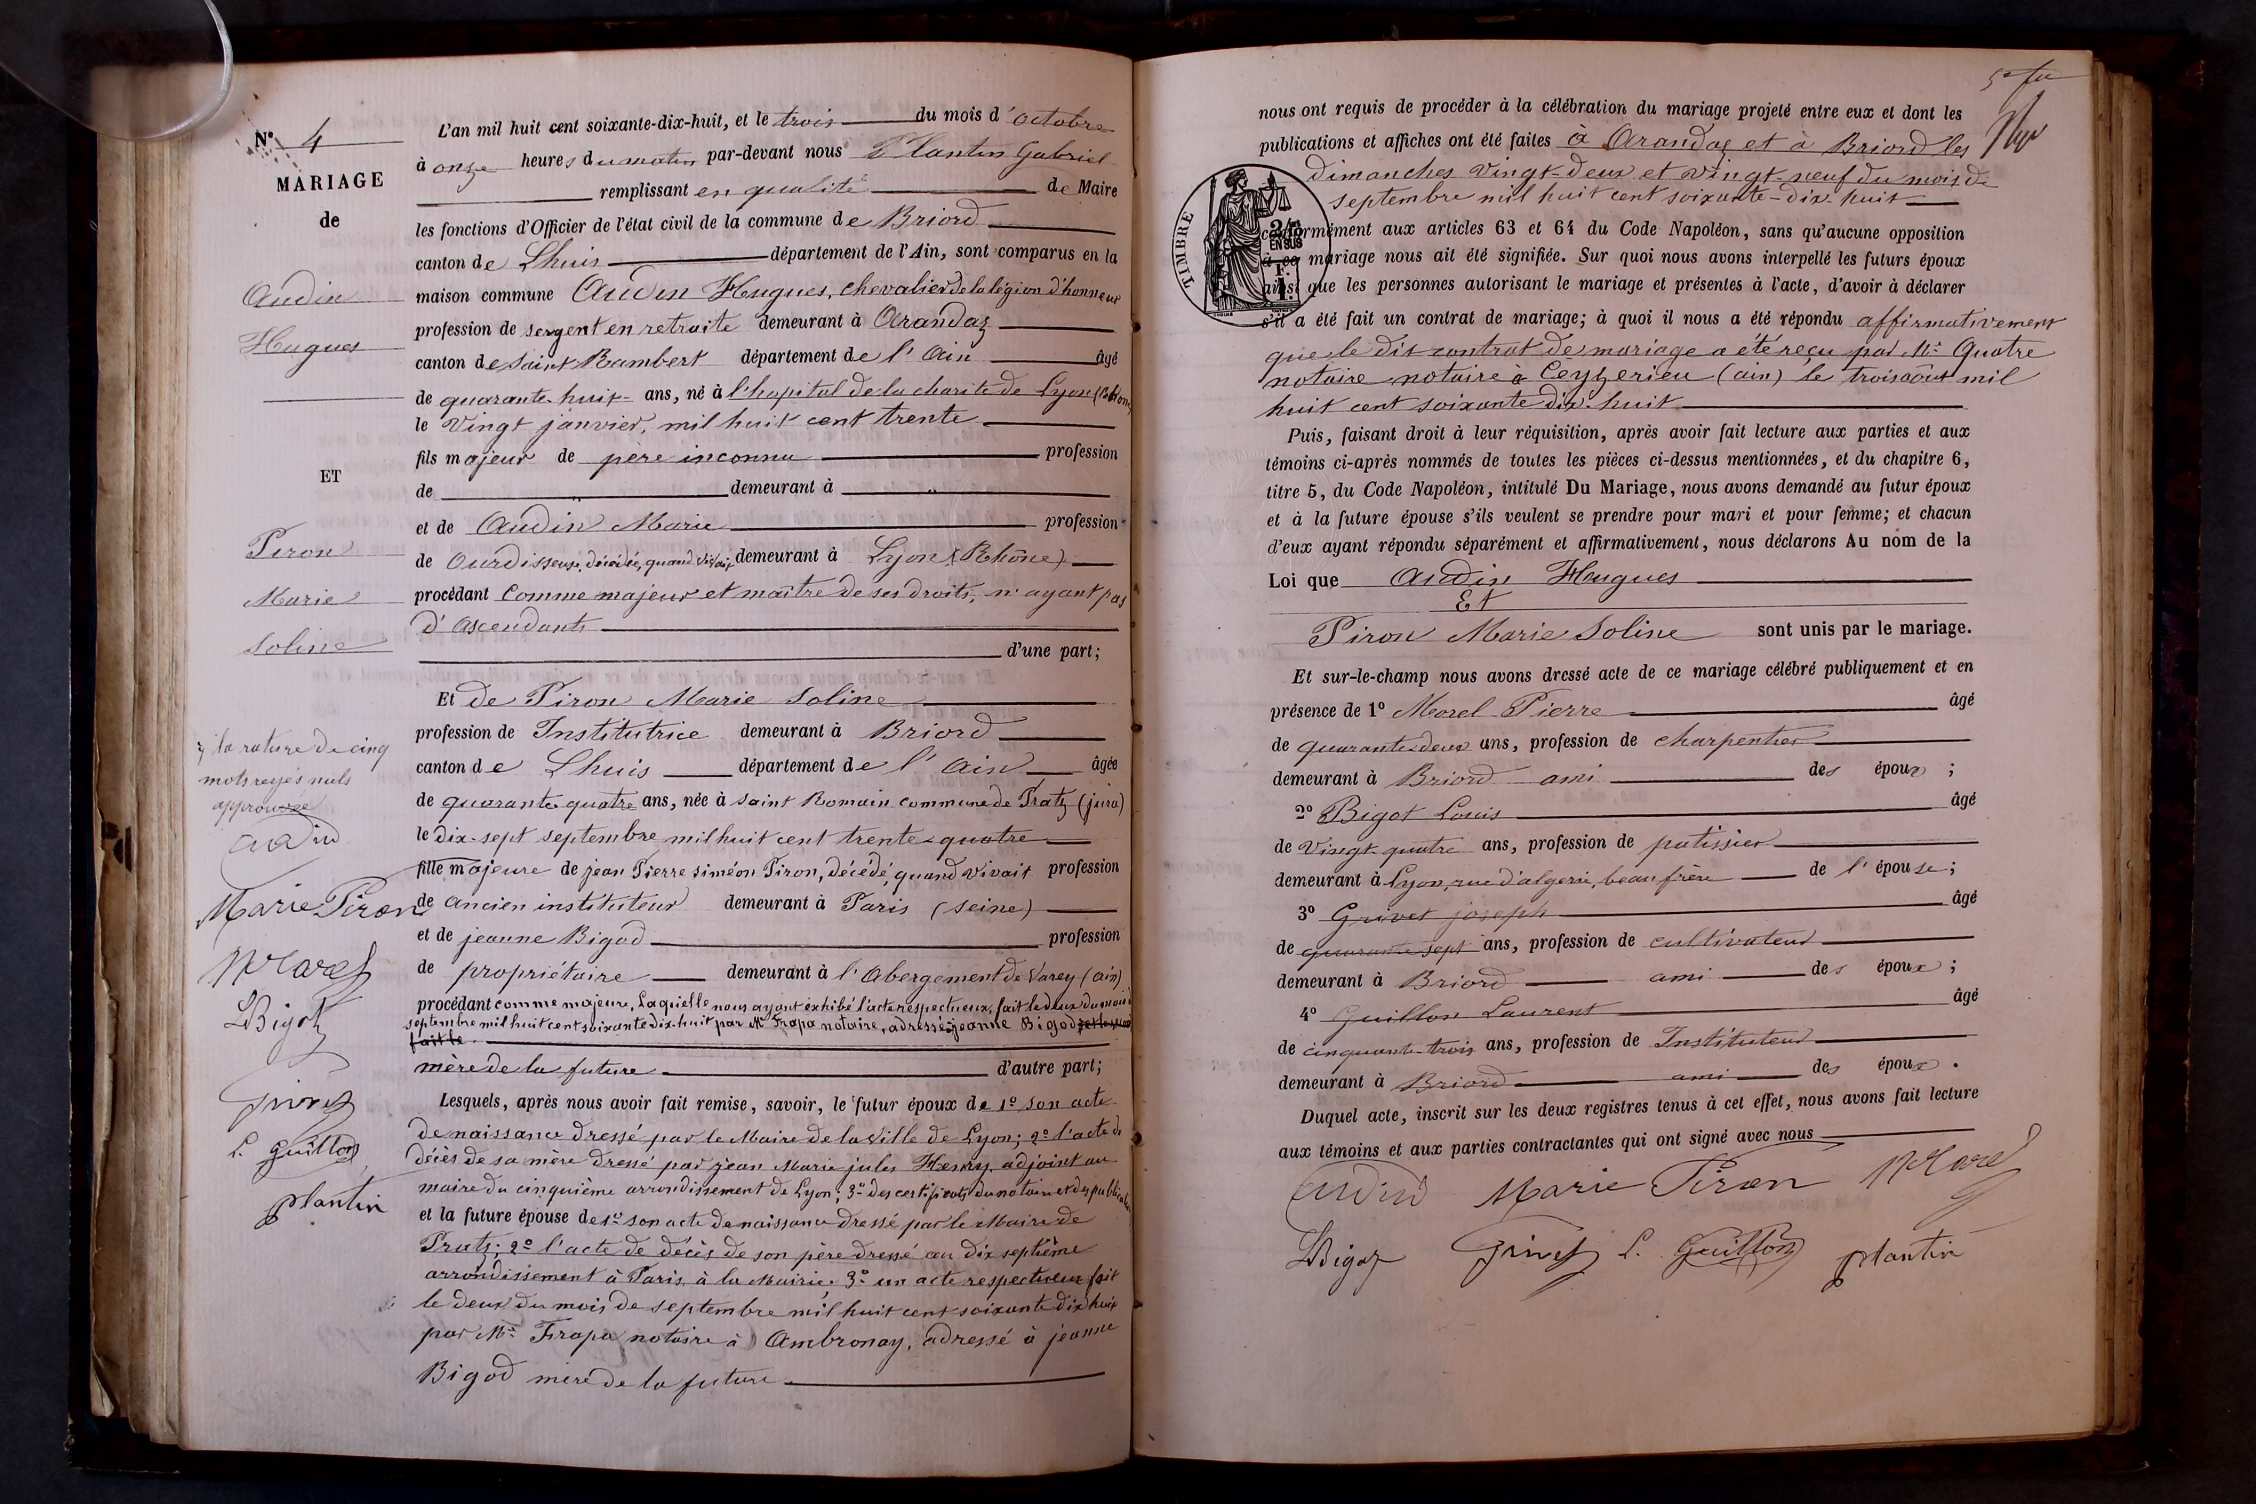 N° 4
MARIAGE
de
Audin
Hugues
ET
Piron
Marie
Soline
la rature de cinq
mots rayés nuls
approuvée
Audin
Marie Piron
Morel
LBigot
Grivet
L. Guillon
Plantin
L'an mil huit cent soixante-dix-huit, et le trois du mois d'octobre
à onze heures du matin par-devant nous Plantin Gabriel
remplissant en qualité de Maire
les fonctions d'Officier de l'état civil de la commune de Briord
canton de Lhuis département de l'Ain, sont comparus en la
maison commune Audin Hugues, chevalier de la légion d'honneur
profession de sergent en retraite demeurant à Arandaz
canton de Saint Rambert département de l'Ain âgé
de quarante-huit ans, né à l'hopital de la charité de Lyon (Rhône)
le vingt janvier, mil huit cent trente
fils majeur de père inconnu profession
de " demeurant à "
et de Audin Marie profession
de Ourdisseuse, décédée, quand vivait demeurant à Lyon (Rhône)
procédant comme majeur et maître de ses droits, n'ayant pas
d'ascendants
d'une part;
Et de Piron Marie Soline
profession de Institutrice demeurant à Briord
canton de Lhuis département de l'Ain âgée
de quarante quatre ans, née à Saint Romain commune de Pratz (jura)
le dix-sept septembre mil huit cent trente-quatre
fille majeure de jean Pierre siméon Piron, décédé, quand vivait profession
de ancien instituteur demeurant à Paris (seine)
et de jeanne Bigod profession
de propriétaire demeurant à l'Abergement de Varey (ain)
procédant comme majeure, Laquelle nous ayant exhibé l'acte respectueux, fait le deux du mois de
septembre mil huit cent soixante dix-huit par Mr Frapa notaire, adressé à jeanne Bigod
fait le
mère de la future d'autre part;
Lesquels, après nous avoir fait remise, savoir, le futur époux de 1° son acte
de naissance dressé par le Maire de la ville de Lyon; 2° l'acte de
décès de sa mère dressé par jean Marie jules Henry adjoint au
maire du cinquième arrondissement de Lyon; 3° des certificats du notaire et des publications
et la future épouse de 1° son acte de naissance dressé par le Maire de
Pratz; 2° l'acte de décès de son père dressé au dix septième
arrondissement à Paris, à la Mairie; 3° un acte respectueux fait
le deux du mois de septembre mil huit cent soixante dix huit
par Mr Frapa notaire à Ambronay, adressé à jeanne
Bigod mère de la future
nous ont requis de procéder à la célébration du mariage projeté entre eux et dont les
publications et affiches ont été faites à Arandaz et à Briord les
dimanches vingt-deux et vingt-neuf du mois de
septembre mil huit cent soixante-dix-huit
TIMBRE
EN SUS
conformément aux articles 63 et 64 du Code Napoléon, sans qu'aucune opposition
à ce mariage nous ait été signifiée. Sur quoi nous avons interpellé les futurs époux
ainsi que les personnes autorisant le mariage et présentes à l'acte, d'avoir à déclarer
s'il a été fait un contrat de mariage; à quoi il nous a été répondu affirmativement
que le dit contrat de mariage a été reçu par Mr Quatre
notaire notaire à Ceyzerieu (ain) le trois août mil
huit cent soixante dix-huit
Puis, faisant droit à leur réquisition, après avoir fait lecture aux parties et aux
témoins ci-après nommés de toutes les pièces ci-dessus mentionnées, et du chapitre 6,
titre 5, du Code Napoléon, intitulé Du Mariage, nous avons demandé au futur époux
et à la future épouse s'ils veulent se prendre pour mari et pour femme; et chacun
d'eux ayant répondu séparément et affirmativement, nous déclarons Au nom de la
Loi que Audin Hugues
Et
Piron Marie Soline sont unis par le mariage.
Et sur-le-champ nous avons dressé acte de ce mariage célébré publiquement et en
présence de 1° Morel Pierre âgé
de quarante-deux ans, profession de charpentier
demeurant à Briord ami des époux ;
2° Bigot Louis âgé
de vingt-quatre ans, profession de patissier
demeurant à Lyon, rue d'algerie, beau frère de l'épouse;
3° Grivet joseph âgé
de quarante sept ans, profession de cultivateur
demeurant à Briord ami des époux ;
4° Guillon Laurent âgé
de cinquante-trois ans, profession de Instituteur
demeurant à Briord ami des époux .
Duquel acte, inscrit sur les deux registres tenus à cet effet, nous avons fait lecture
aux témoins et aux parties contractantes qui ont signé avec nous
Audin Marie Piron Morel
LBigot Grivet L. Guillon Plantin